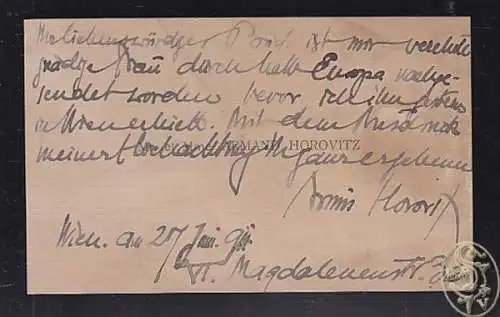 liebenswürdiger Brief ist mir verehrte
gnädige Frau durch halb Europa nachge-
sendet worden bevor ich ihn gestern
in Wien erhielt. Mit dem Ausdruck
meinert Hochachtung Ihr ganz ergebener
ARMAND HOROVITZ
Armin Horovitz
Wien. am 20/ Juni
VI. Magdalenenstr.